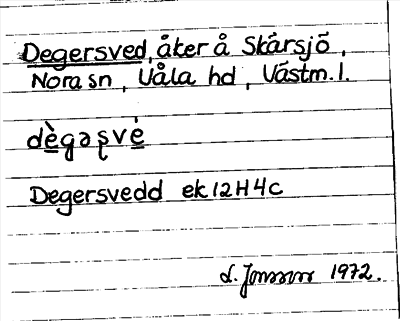 Degersved, åker å Skärsjö,
Nora sn, Våla hd, Västm. l.
dègəʂvè
Degersvedd ek 12H4c
L. Jonsson 1972.